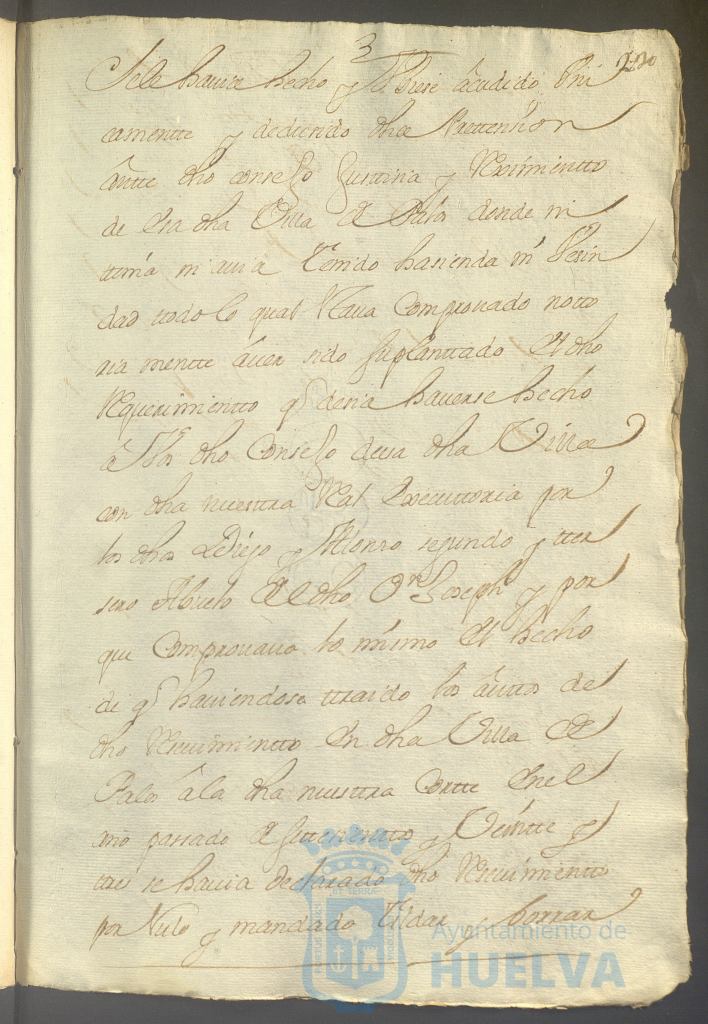 3
230
se le havia hecho y hubiese acudido uni
camentte y deducido dha Prettension
antte dho consejo Justticia y Reximientto
de esa dha Villa de Palos donde ni
ttenia ni avia ttenido hasienda ni Vesin
dad ttodo lo qual comprovado notto
ria mentte aver sido suplanttado el dho
Requerimientto q desia haverse hecho
a dho Consejo desa dha Villa
con dha nuesttra Real Executtoria por
los dhos Diego y Alonso segundo y tter
sero Abuelo del dho Dn Joseph y por
que comprovava lo mismo el hecho
de q haviendose ttraido los auttos de
dho Resivimientto en dha Villa de
Palos a la dha nuesttra Cortte en el
año passado de settesientos y Veintte y
ttres se havia declarado dho Resivimientto
por Nulo y mandado Tildar y borrar
Ayuntamiento de
HUELVA